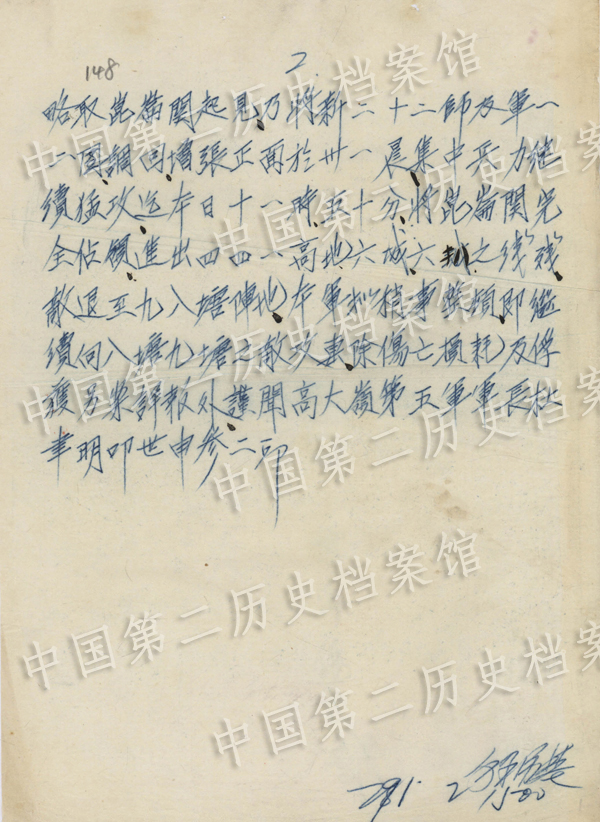 148
2
略取崑崙関起見乃將新二十二師及軍一
團調回增張正面於卅一晨集中兵力继
續猛攻迄本日十一時五十分將崑崙関完
全佔領進出四四一高地六城六之线残
敵退至九八塘陣地本軍稍事整頓即继
續向八塘九塘之敵攻擊除傷亡損耗及俘
獲另案詳報外謹聞高大嶺第五軍軍長杜
聿明叩世申参二印
中国第二历史档案馆
中国第二历史档案馆
中国第二历史档案馆
中国第二历史档案馆
中国第二历史档案馆
中国第二历史档案馆